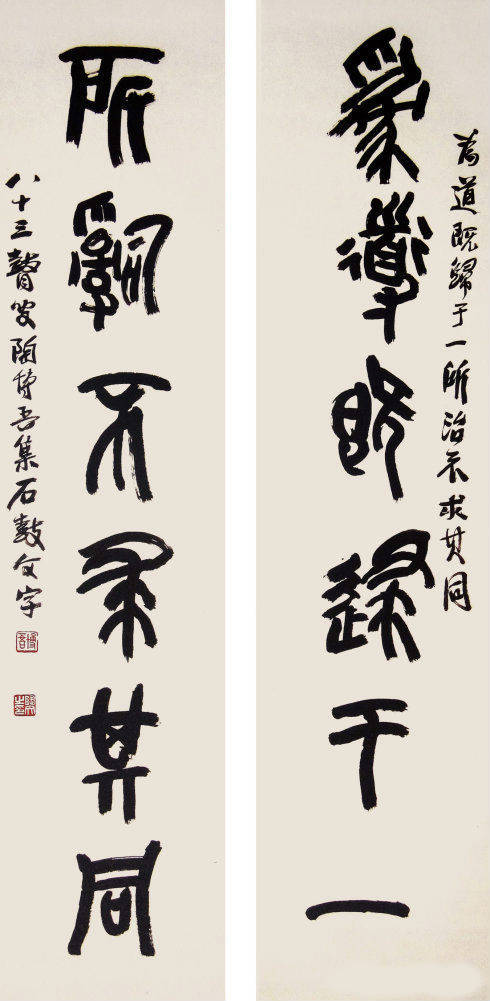 為道既歸于一所治不求其同
為道既歸于一
所治不求其同
八十三瞽叟陶博吾集石鼓文字
博吾